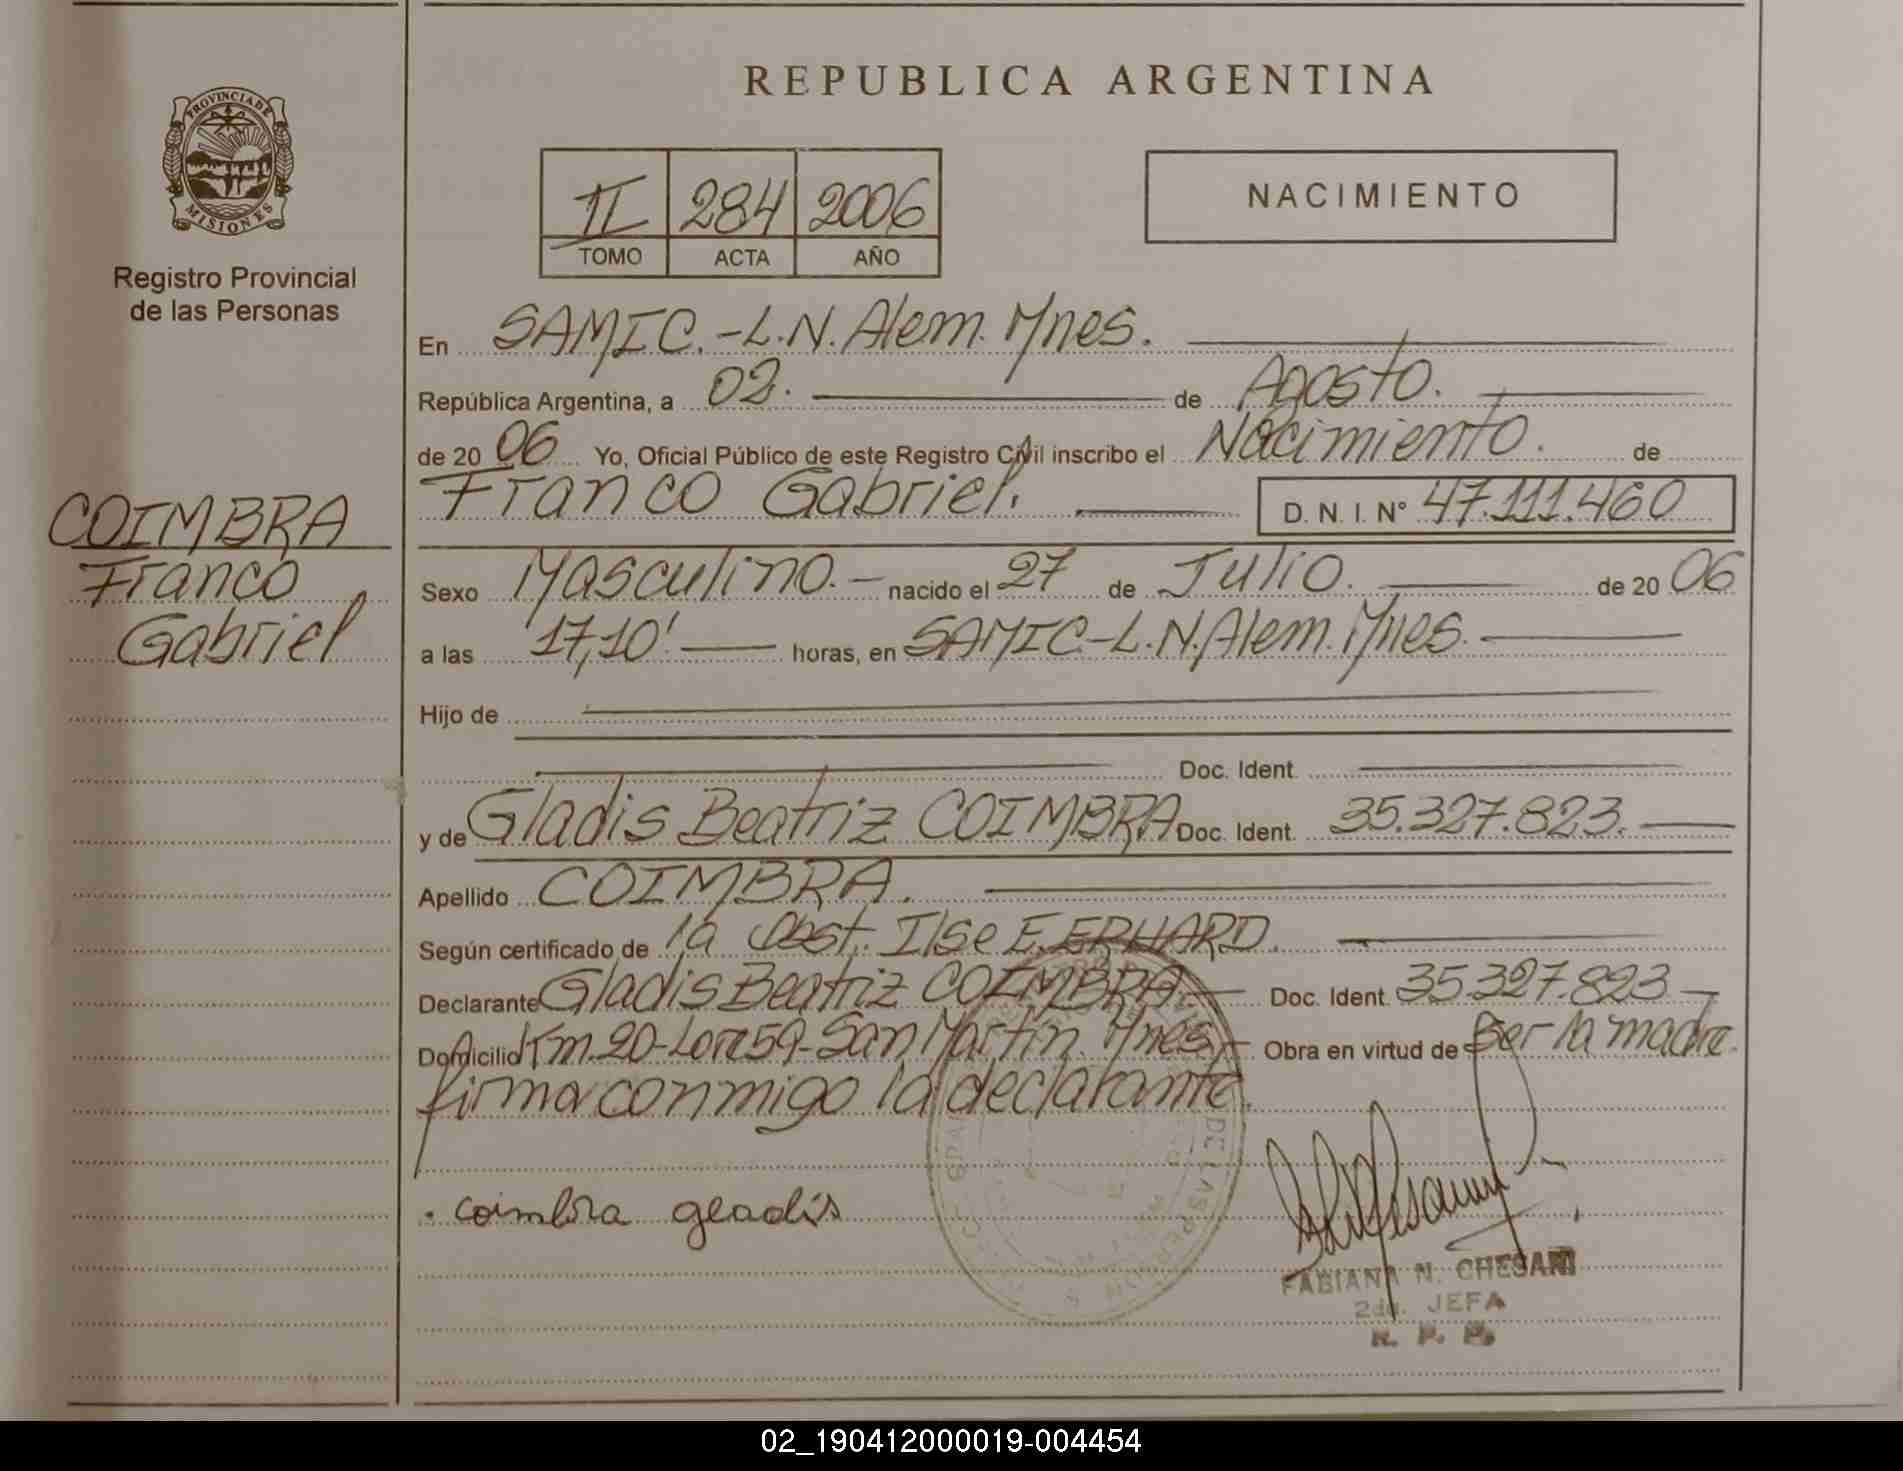 REPUBLICA ARGENTINA
PROVINCIA DE
MISIONES
Registro Provincial
de las Personas
II 284 2006
TOMO ACTA AÑO
NACIMIENTO
En SAMIC.-L.N.Alem.Mnes.
República Argentina, a 02. de Agosto.
de 2006 Yo, Oficial Público de este Registro Civil inscribo el Nacimiento. de
Franco Gabriel. D. N. I. N° 47.111.460
COIMBRA
Franco
Gabriel
Sexo Masculino.- nacido el 27 de Julio. de 2006
a las 17,10'. horas, en SAMIC-L.N.Alem.Mnes.
Hijo de
Doc. Ident.
y de Gladis Beatriz COIMBRA Doc. Ident. 35.327.823.
Apellido COIMBRA.
Según certificado de la Obst. Ilse E. ERHARD.
Declarante Gladis Beatriz COIMBRA.- Doc. Ident. 35.327.823-
Domicilio Km.20-Lote 59-San Martín. Mnes.- Obra en virtud de Ser la madre.
firma conmigo la declarante.
DE LAS PERSONAS
. coimbra gladis
FABIANA N. CHESANI
2da. JEFA
R. P. P.
02_190412000019-004454